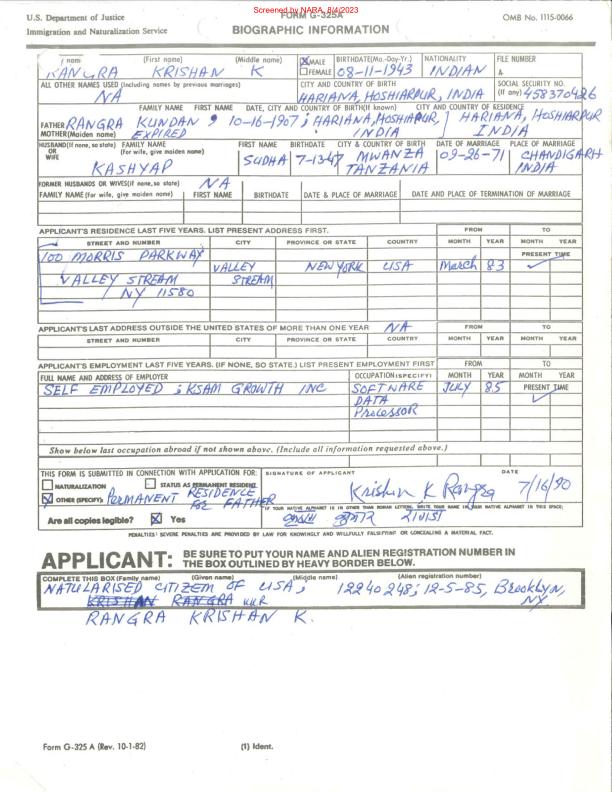 Screened by NARA, 8/4/2023
U.S. Department of Justice
Immigration and Naturalization Service
FORM G-325A
BIOGRAPHIC INFORMATION
OMB No. 1115-0066
(First name) (Middle name) MALE FEMALE BIRTHDATE(Mo.-Day-Yr.) NATIONALITY FILE NUMBER
RANGRA KRISHAN K 08-11-1943 INDIAN A-
ALL OTHER NAMES USED (Including names by previous marriages) CITY AND COUNTRY OF BIRTH SOCIAL SECURITY NO. (If any)
NA HARIANA, HOSHIARPUR, INDIA 458370426
FAMILY NAME FIRST NAME DATE, CITY AND COUNTRY OF BIRTH(If known) CITY AND COUNTRY OF RESIDENCE
FATHER RANGRA KUNDAN 10-16-1907; HARIANA, HOSHIARPUR, INDIA HARIANA, HOSHIARPUR INDIA
MOTHER(Maiden name) EXPIRED
HUSBAND(If none, so state) OR WIFE FAMILY NAME (For wife, give maiden name) FIRST NAME BIRTHDATE CITY & COUNTRY OF BIRTH DATE OF MARRIAGE PLACE OF MARRIAGE
KASHYAP SUDHA 7-1347 MWANZA TANZANIA 09-26-71 CHANDIGARH INDIA
FORMER HUSBANDS OR WIVES(if none, so state) NA
FAMILY NAME (For wife, give maiden name) FIRST NAME BIRTHDATE DATE & PLACE OF MARRIAGE DATE AND PLACE OF TERMINATION OF MARRIAGE
APPLICANT'S RESIDENCE LAST FIVE YEARS. LIST PRESENT ADDRESS FIRST. FROM TO
STREET AND NUMBER CITY PROVINCE OR STATE COUNTRY MONTH YEAR MONTH YEAR
PRESENT TIME
100 MORRIS PARKWAY VALLEY STREAM NEW YORK USA March 83
VALLEY STREAM
NY 11580
APPLICANT'S LAST ADDRESS OUTSIDE THE UNITED STATES OF MORE THAN ONE YEAR NA FROM TO
STREET AND NUMBER CITY PROVINCE OR STATE COUNTRY MONTH YEAR MONTH YEAR
APPLICANT'S EMPLOYMENT LAST FIVE YEARS. (IF NONE, SO STATE.) LIST PRESENT EMPLOYMENT FIRST FROM TO
FULL NAME AND ADDRESS OF EMPLOYER OCCUPATION(SPECIFY) MONTH YEAR MONTH YEAR
SELF EMPLOYED; KSAM GROWTH INC SOFTWARE JULY 85 PRESENT TIME
DATA
Processor
Show below last occupation abroad if not shown above. (Include all information requested above.)
THIS FORM IS SUBMITTED IN CONNECTION WITH APPLICATION FOR: SIGNATURE OF APPLICANT DATE
NATURALIZATION STATUS AS PERMANENT RESIDENT
OTHER (SPECIFY): PERMANENT RESIDENCE FOR FATHER Krishan K Rangra 7/16/90
IF YOUR NATIVE ALPHABET IS IN OTHER THAN ROMAN LETTERS, WRITE YOUR NAME IN YOUR NATIVE ALPHABET IN THIS SPACE:
Are all copies legible? Yes
PENALTIES: SEVERE PENALTIES ARE PROVIDED BY LAW FOR KNOWINGLY AND WILLFULLY FALSIFYING OR CONCEALING A MATERIAL FACT.
APPLICANT: BE SURE TO PUT YOUR NAME AND ALIEN REGISTRATION NUMBER IN
THE BOX OUTLINED BY HEAVY BORDER BELOW.
COMPLETE THIS BOX (Family name) (Given name) (Middle name) (Alien registration number)
NATULARISED CITIZEM OF USA; 12240248; 12-5-85, Brooklyn, NY.
KRISHAN RANGRA KKR
RANGRA KRISHAN K.
Form G-325 A (Rev. 10-1-82) (1) Ident.